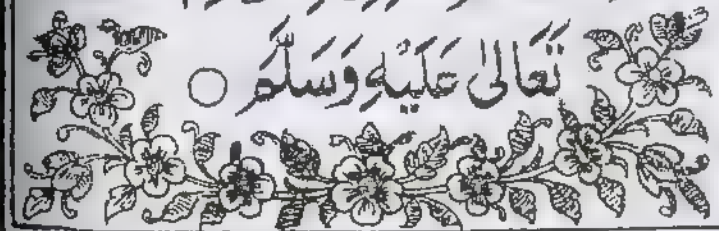 تَعَالیٰ عَلَيْهِ وَسَلَّمَ ○